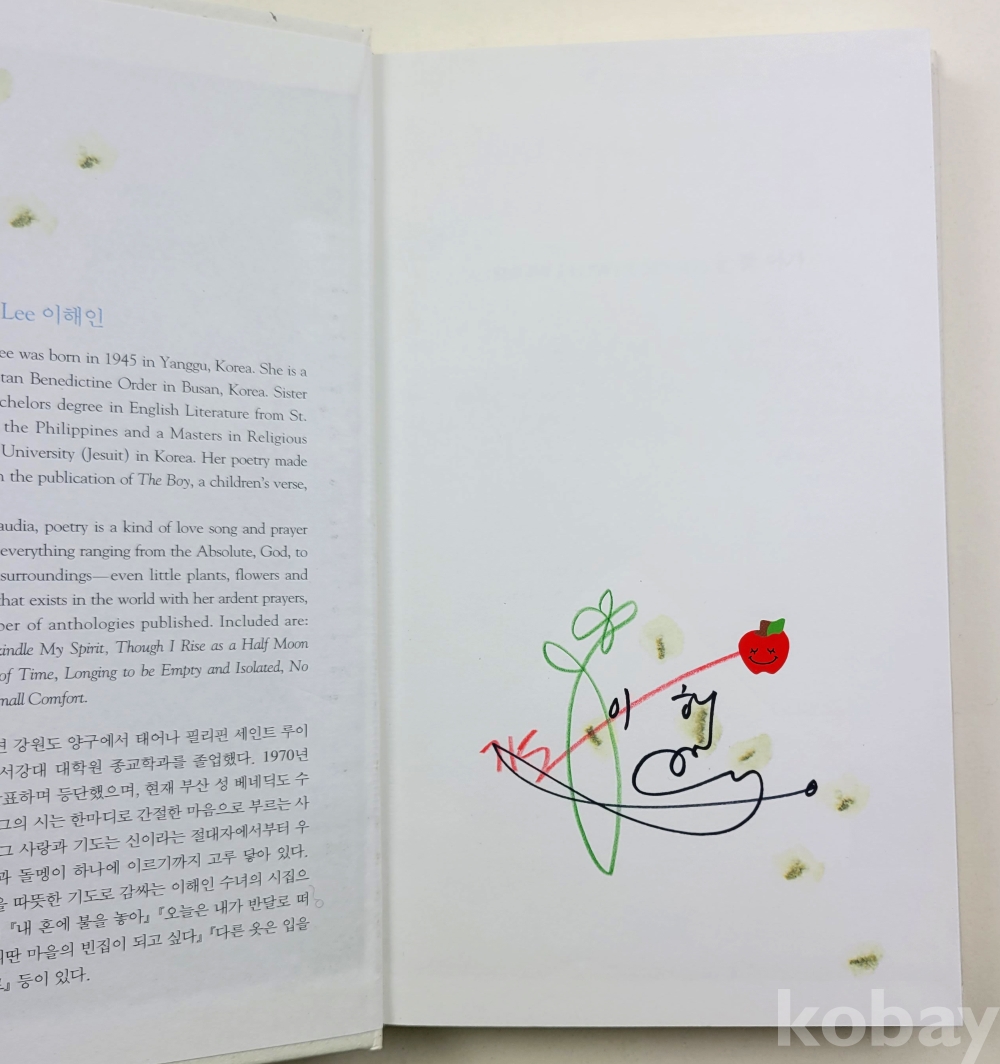 Lee 이해인
ee was born in 1945 in Yanggu, Korea. She is a
tan Benedictine Order in Busan, Korea. Sister
chelors degree in English Literature from St.
the Philippines and a Masters in Religious
University (Jesuit) in Korea. Her poetry made
n the publication of The Boy, a children's verse,
audia, poetry is a kind of love song and prayer
everything ranging from the Absolute, God, to
surroundings—even little plants, flowers and
that exists in the world with her ardent prayers,
ber of anthologies published. Included are:
indle My Spirit, Though I Rise as a Half Moon
of Time, Longing to be Empty and Isolated, No
mall Comfort.
년 강원도 양구에서 태어나 필리핀 세인트 루이
서강대 대학원 종교학과를 졸업했다. 1970년
발표하며 등단했으며, 현재 부산 성 베네딕도 수
그의 시는 한마디로 간절한 마음으로 부르는 사
그 사랑과 기도는 신이라는 절대자에서부터 우
과 돌멩이 하나에 이르기까지 고루 닿아 있다.
을 따뜻한 기도로 감싸는 이해인 수녀의 시집으
『내 혼에 불을 놓아』 『오늘은 내가 반달로 떠
외딴 마을의 빈집이 되고 싶다』 『다른 옷은 입을
』 등이 있다.
이해인
kobay